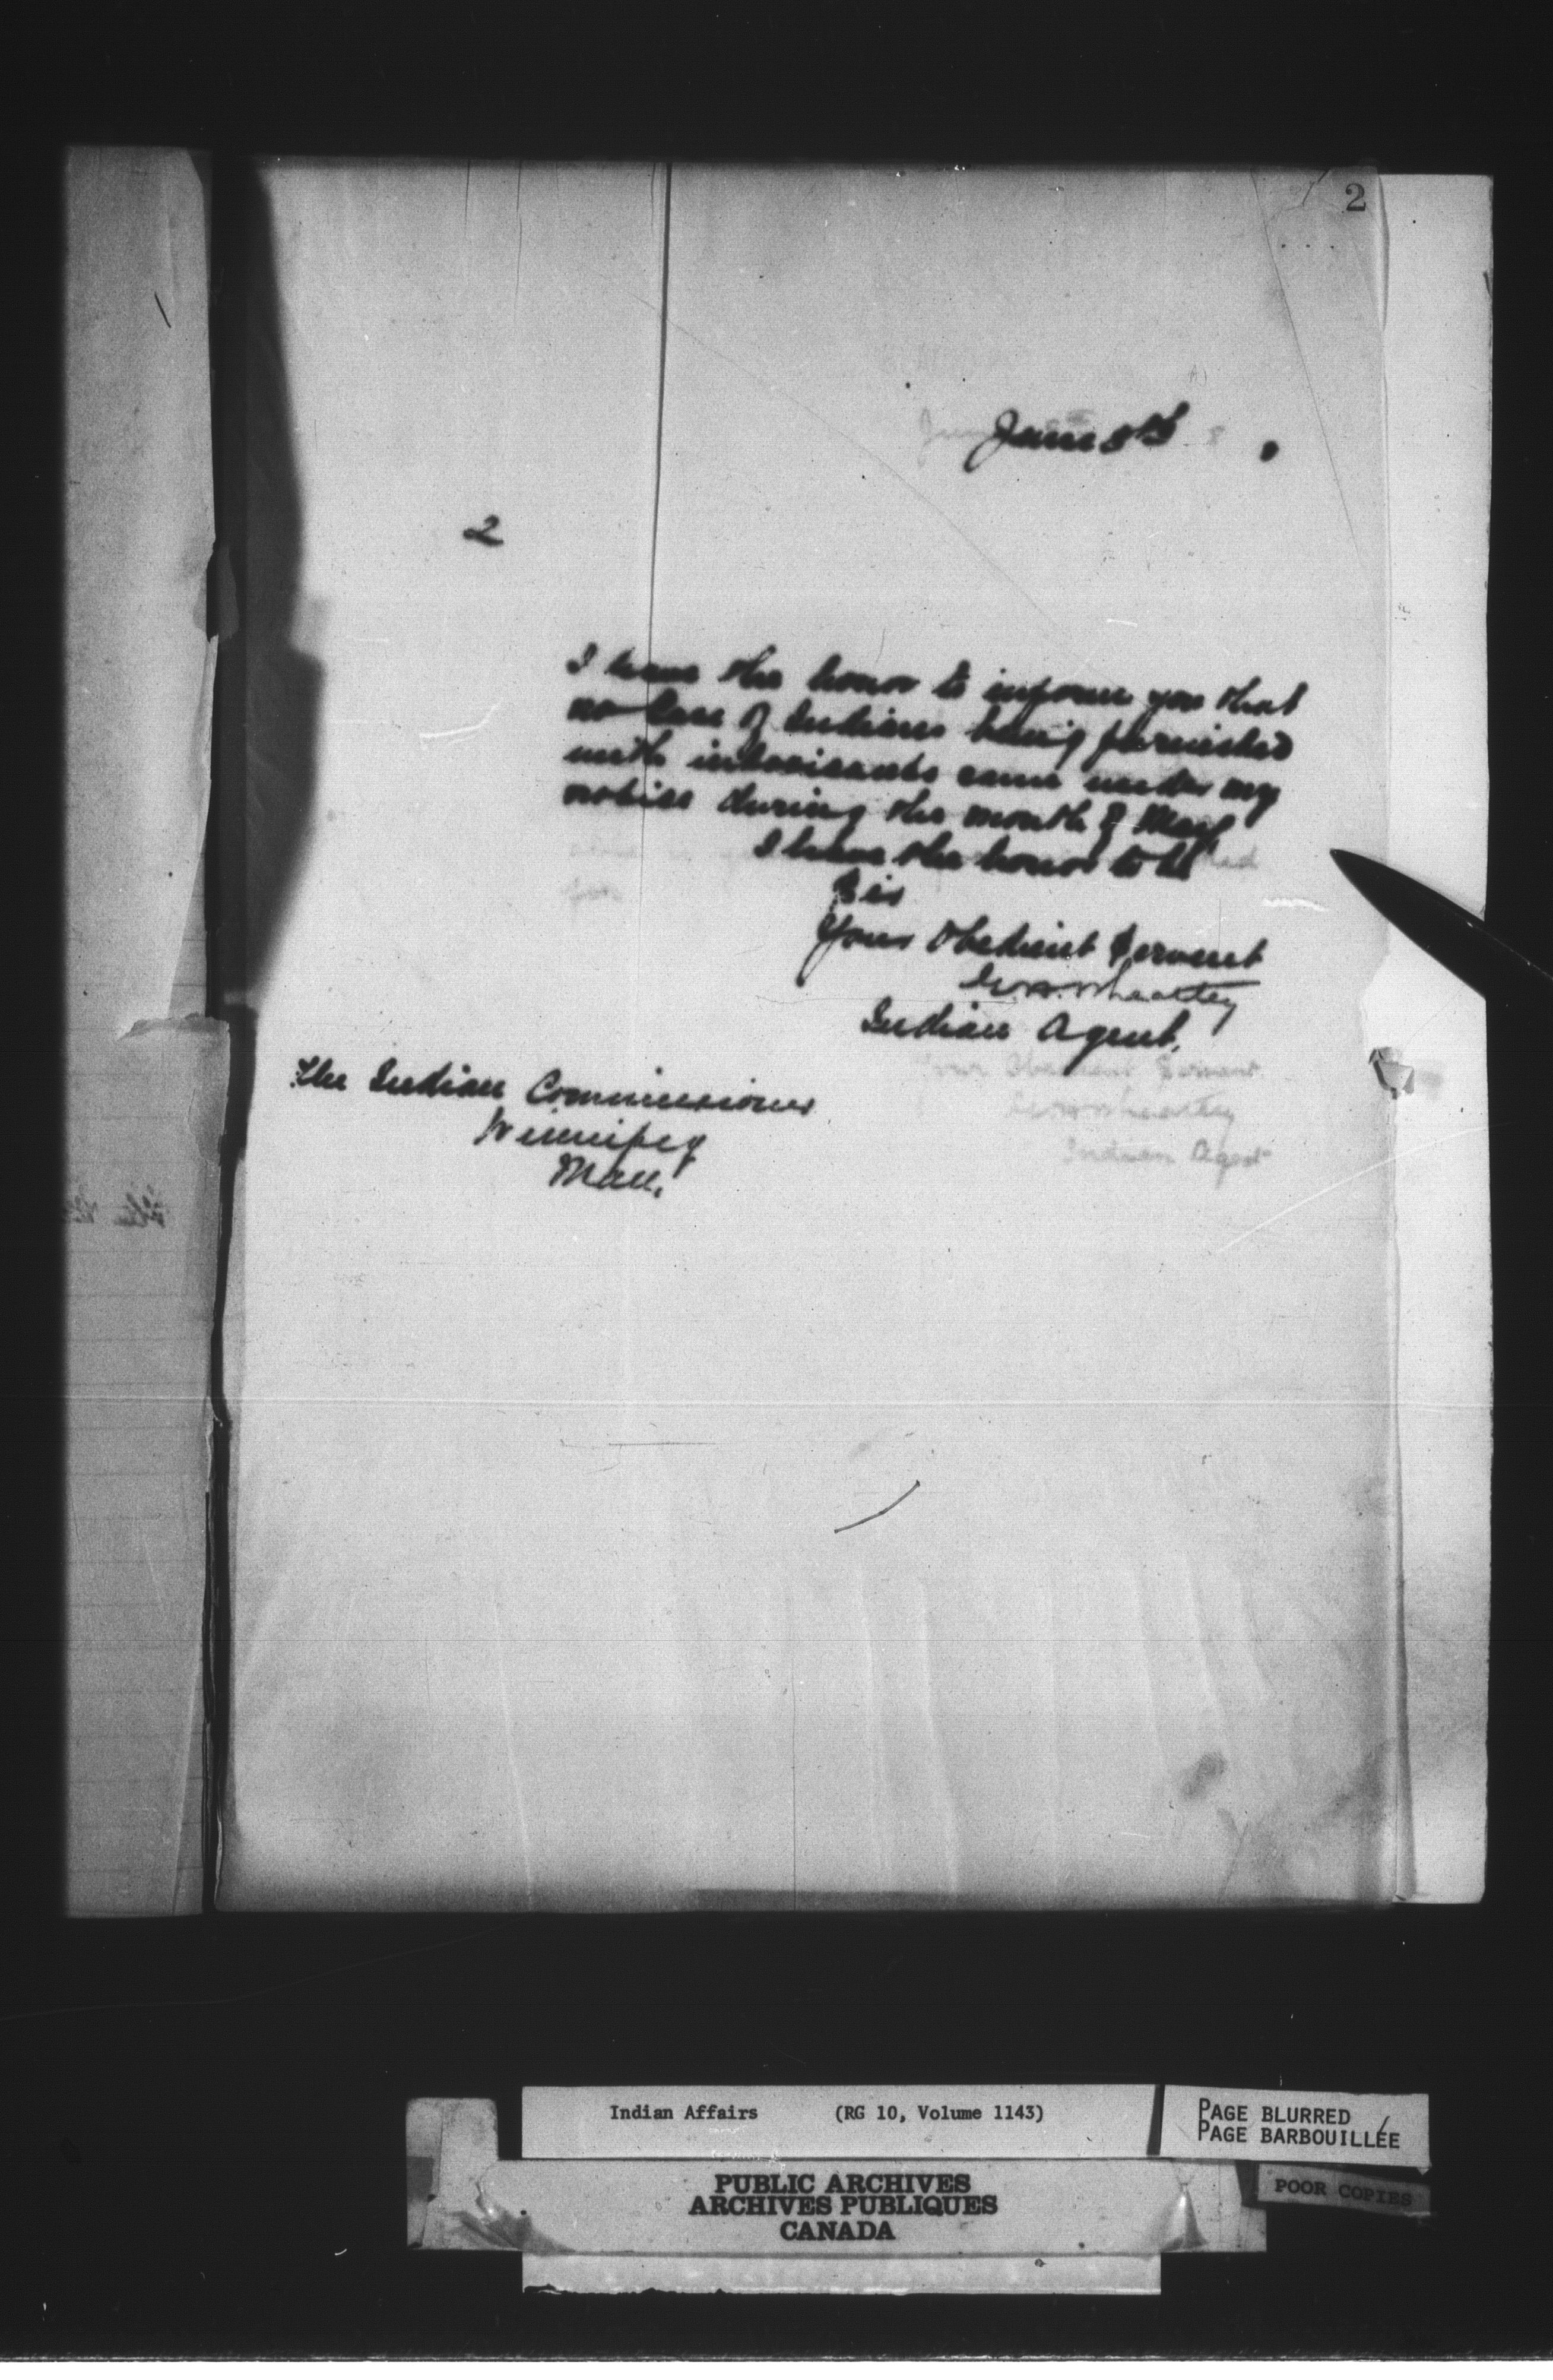 2
June 8th
2
I have the honor to inform you that
no Case of Indians being furnished
with intoxicants came under my
notice during the month of May
I have the honor to be
Sir
Your Obedient Servant
Wheatley
Indian Agent.
The Indian Commissioner
Winnipeg
Man.
Your Obedient Servant
Wheatley
Indian Agent
Indian Affairs (RG 10, Volume 1143)
PAGE BLURRED
PAGE BARBOUILLÉE
PUBLIC ARCHIVES
ARCHIVES PUBLIQUES
CANADA
POOR COPIES